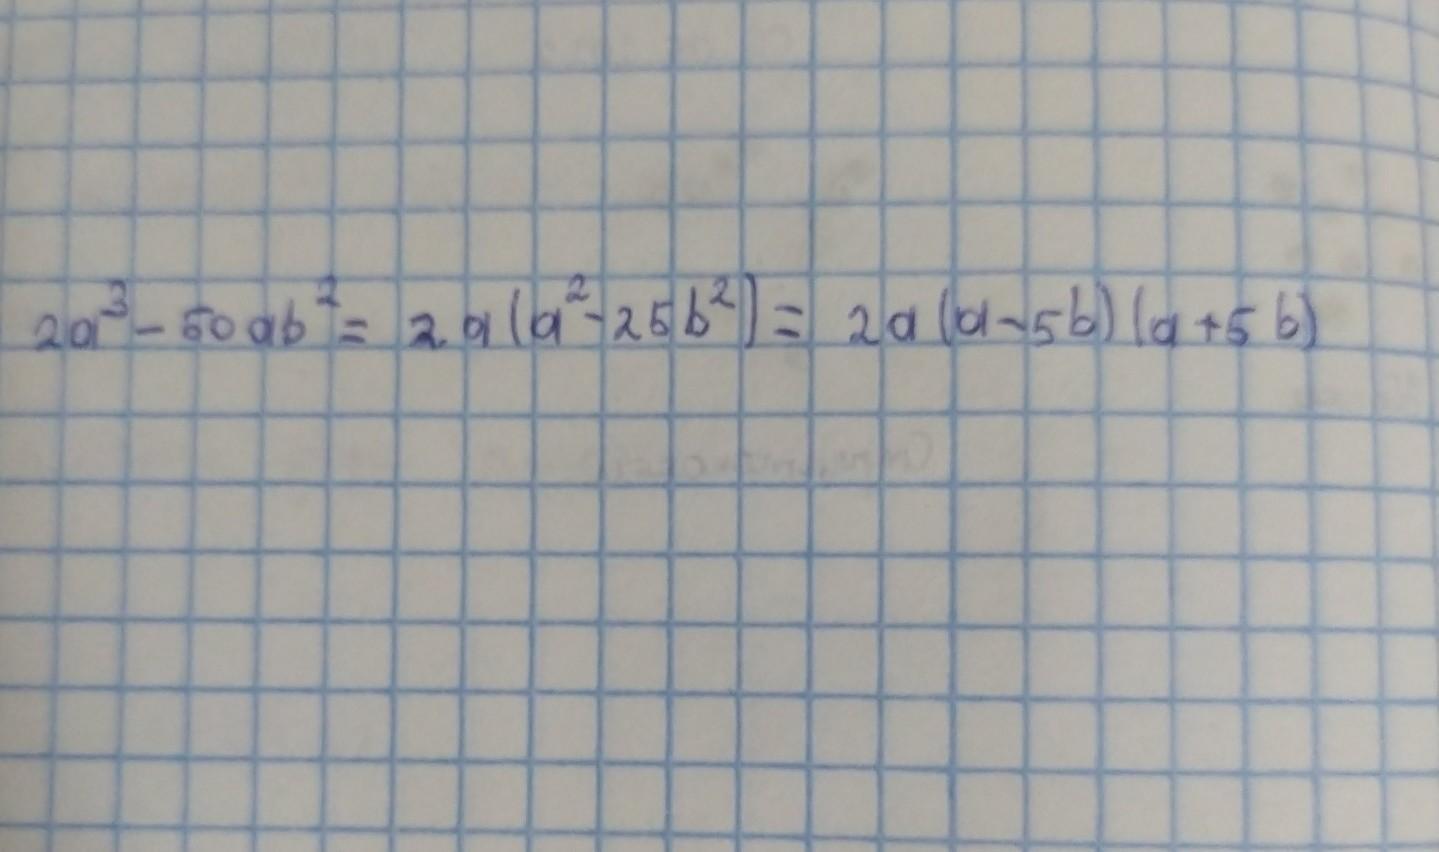 2a³ - 50ab² = 2a(a² - 25b²) = 2a(a - 5b)(a + 5b)